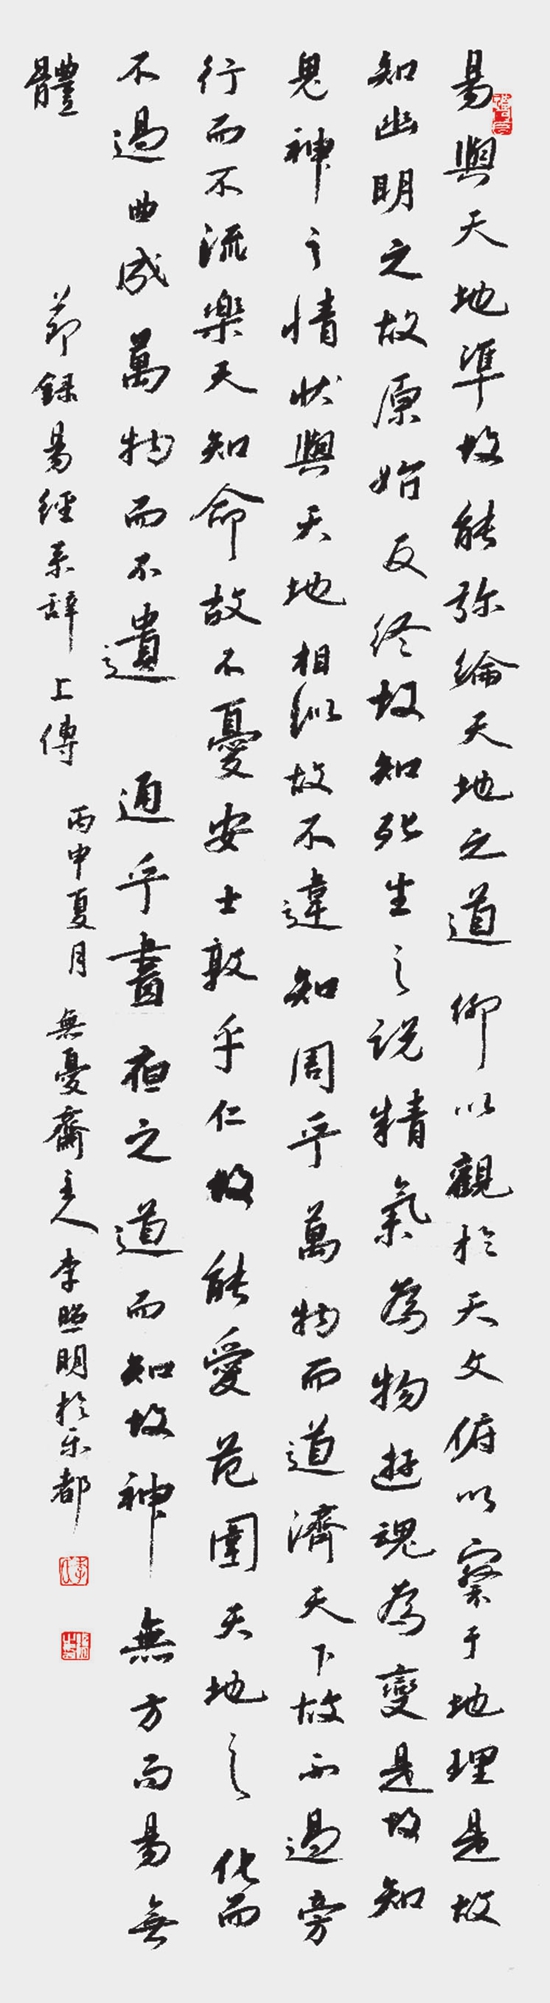 易與天地準故能弥綸天地之道仰以觀於天文俯以察于地理是故
知幽明之故原始反終故知死生之说精氣為物遊魂為變是故知
鬼神之情状與天地相似故不違知周乎萬物而道濟天下故不過旁
行而不流樂天知命故不憂安士敦乎仁故能愛范圍天地之化而
不過曲成萬物而不遺通乎晝夜之道而知故神無方而易無
體
節錄易經系辞上傳
丙申夏月
無憂齋主人李照明於乐都